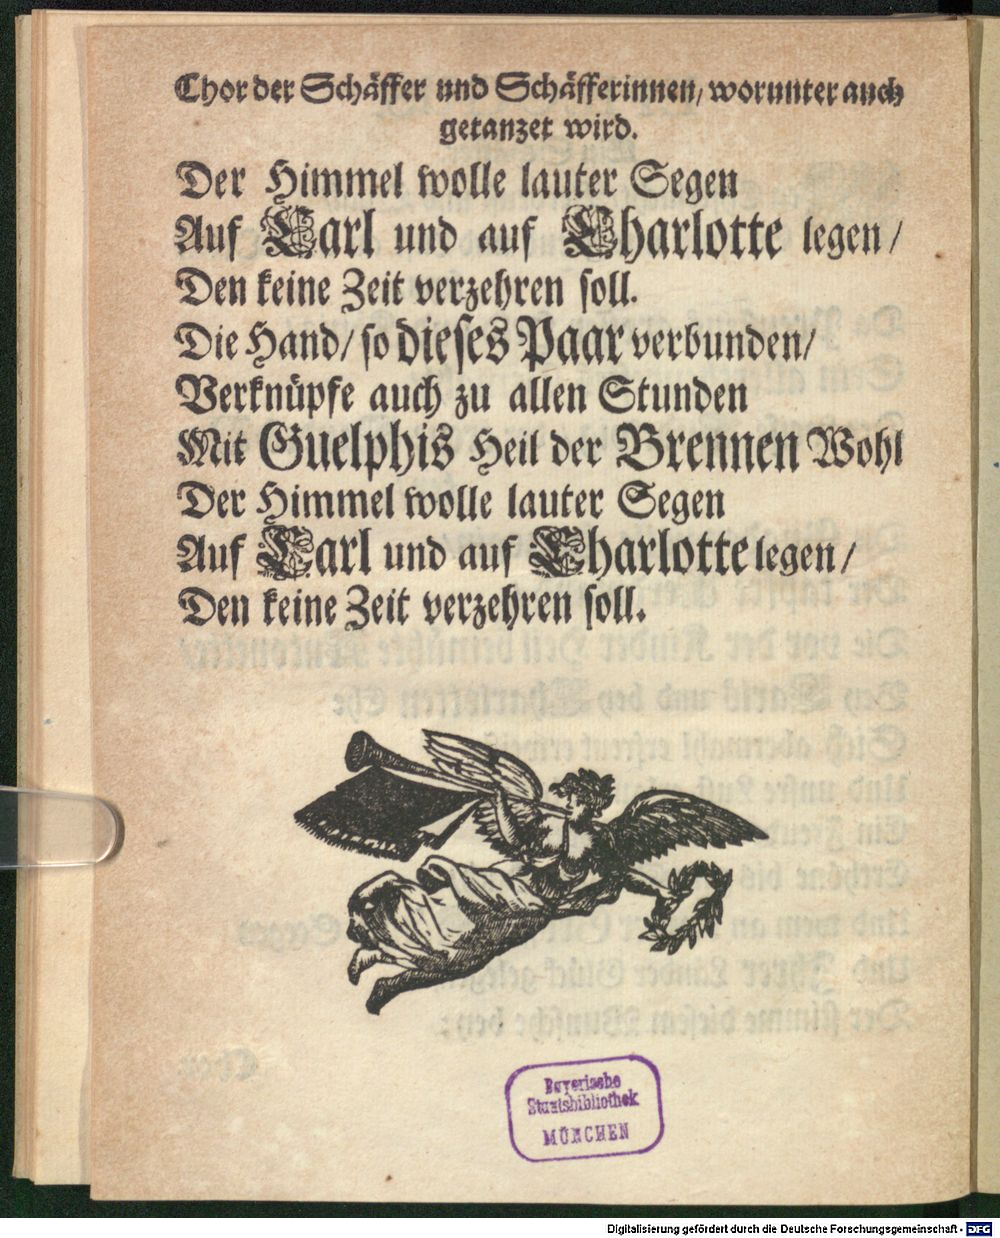 Chor der Schäffer und Schäfferinnen/ worunter auch
getanzet wird.
Der Himmel wolle lauter Segen
Auf Carl und auf Charlotte legen/
Den keine Zeit verzehren soll.
Die Hand/ so dieses Paar verbunden/
Verknüpfe auch zu allen Stunden
Mit Guelphis Heil der Brennen Wohl
Der Himmel wolle lauter Segen
Auf Carl und auf Charlotte legen/
Den keine Zeit verzehren soll.
Bayerische
Staatsbibliothek
MÜNCHEN
Digitalisierung gefördert durch die Deutsche Forschungsgemeinschaft - DFG